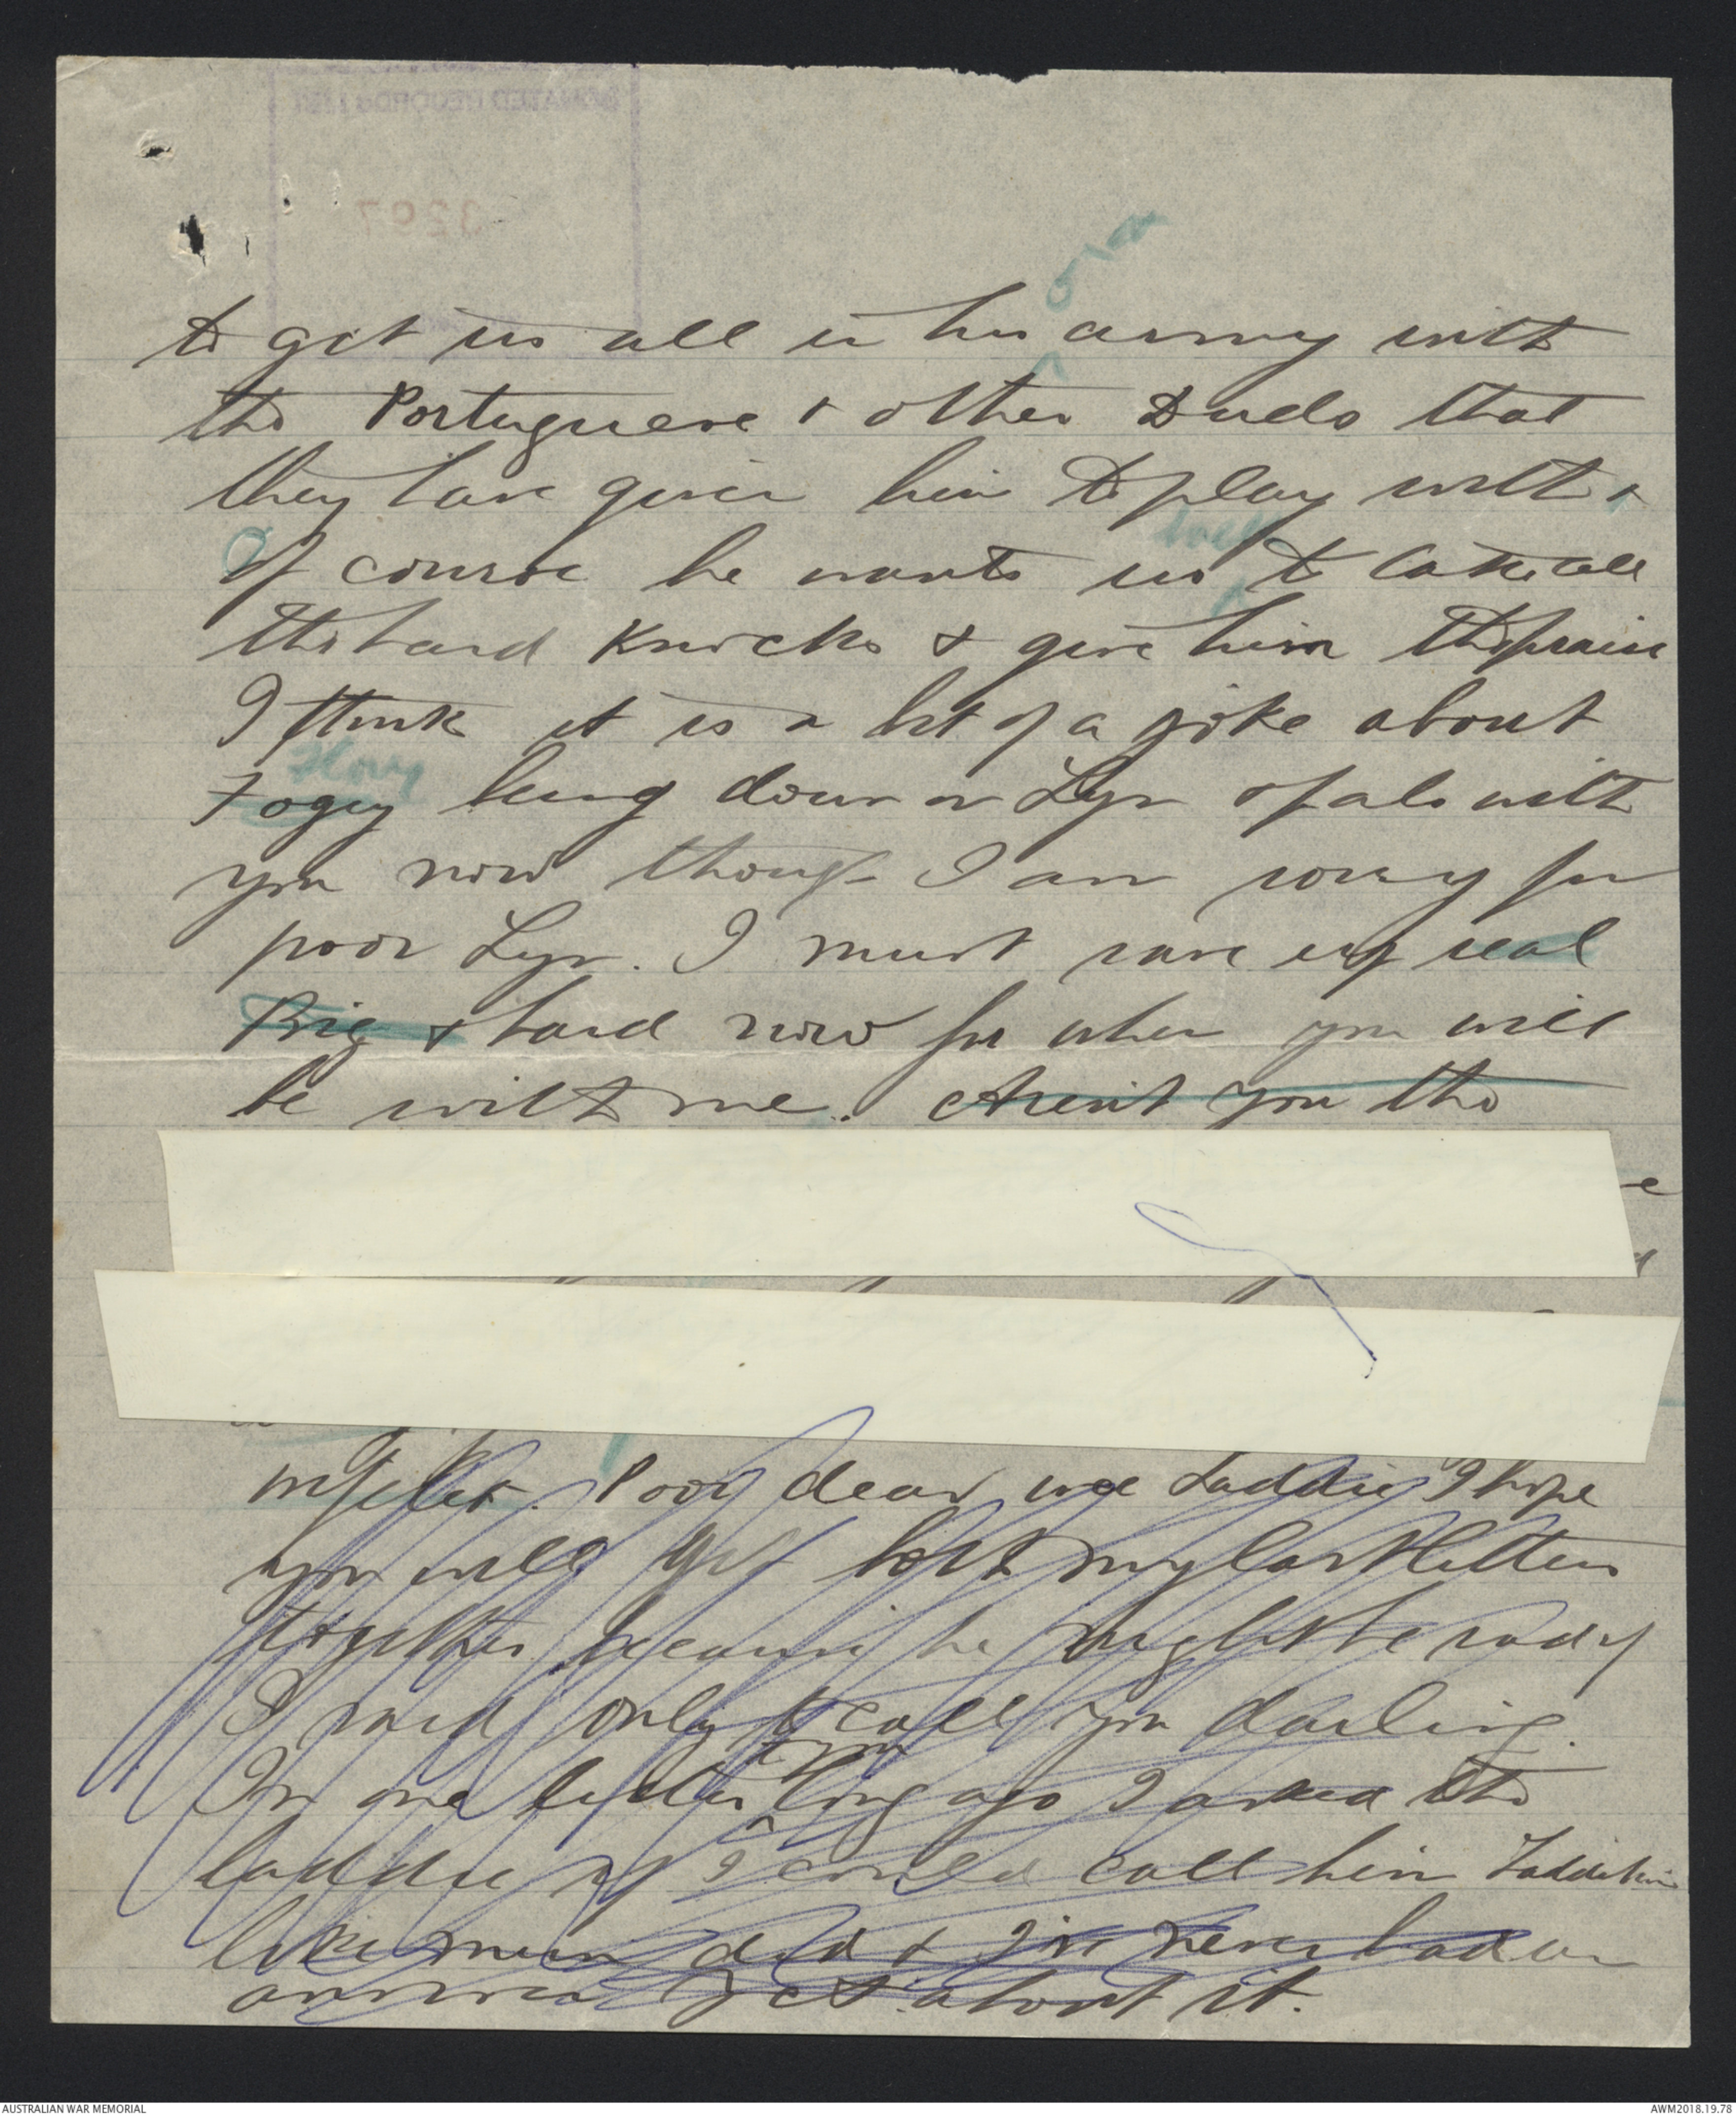 to get us all in his army with
the Portuguese & other Duds that
they have given him to play with &
Of course he wants us to take all
the hard knocks & give him the praise
I think it is a bit of a joke about
Fogey being down on Lyn & pals with
you now though I am sorry for
poor Lyn. I must save up real
Big & hard now for when you will
be with me. Aren't you the
myself. Poor dear wee Laddie I hope
you will get both my last letters
together because he might be sad if
I used only to call you darling.
In one letter to you long ago I asked the
laddie if I could call him Laddikin
like mum did & I've never had an
answer yet about it.
3297
AUSTRALIAN WAR MEMORIAL
AWM2018.19.78